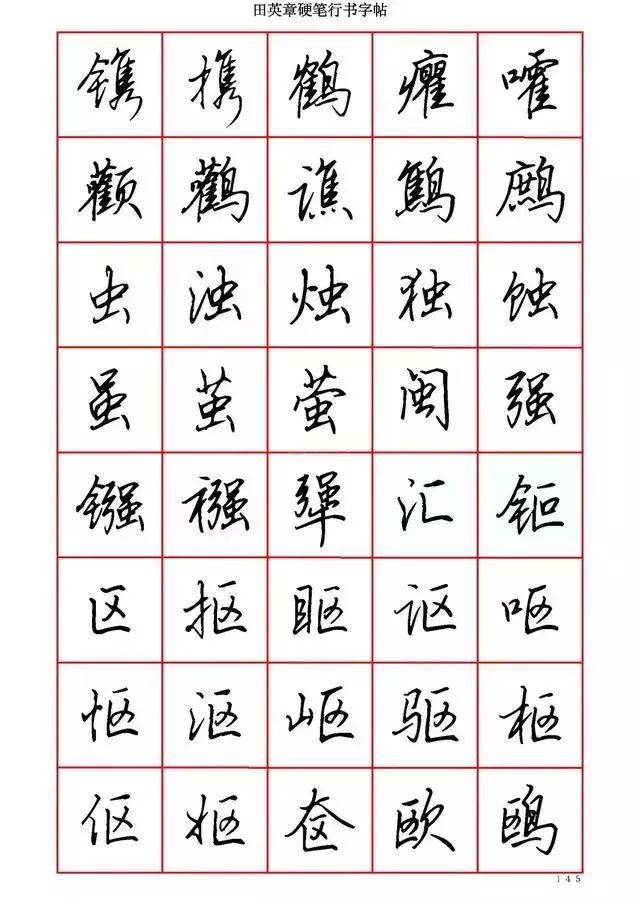 田英章硬笔行书字帖
镌 携 鹤 癯 嚯
颧 鹳 谯 鹪 鹧
虫 浊 烛 独 蚀
虽 茧 萤 闽 强
镪 襁 犟 汇 钷
区 抠 眍 讴 呕
怄 沤 岖 驱 枢
伛 妪 奁 欧 鸥
145